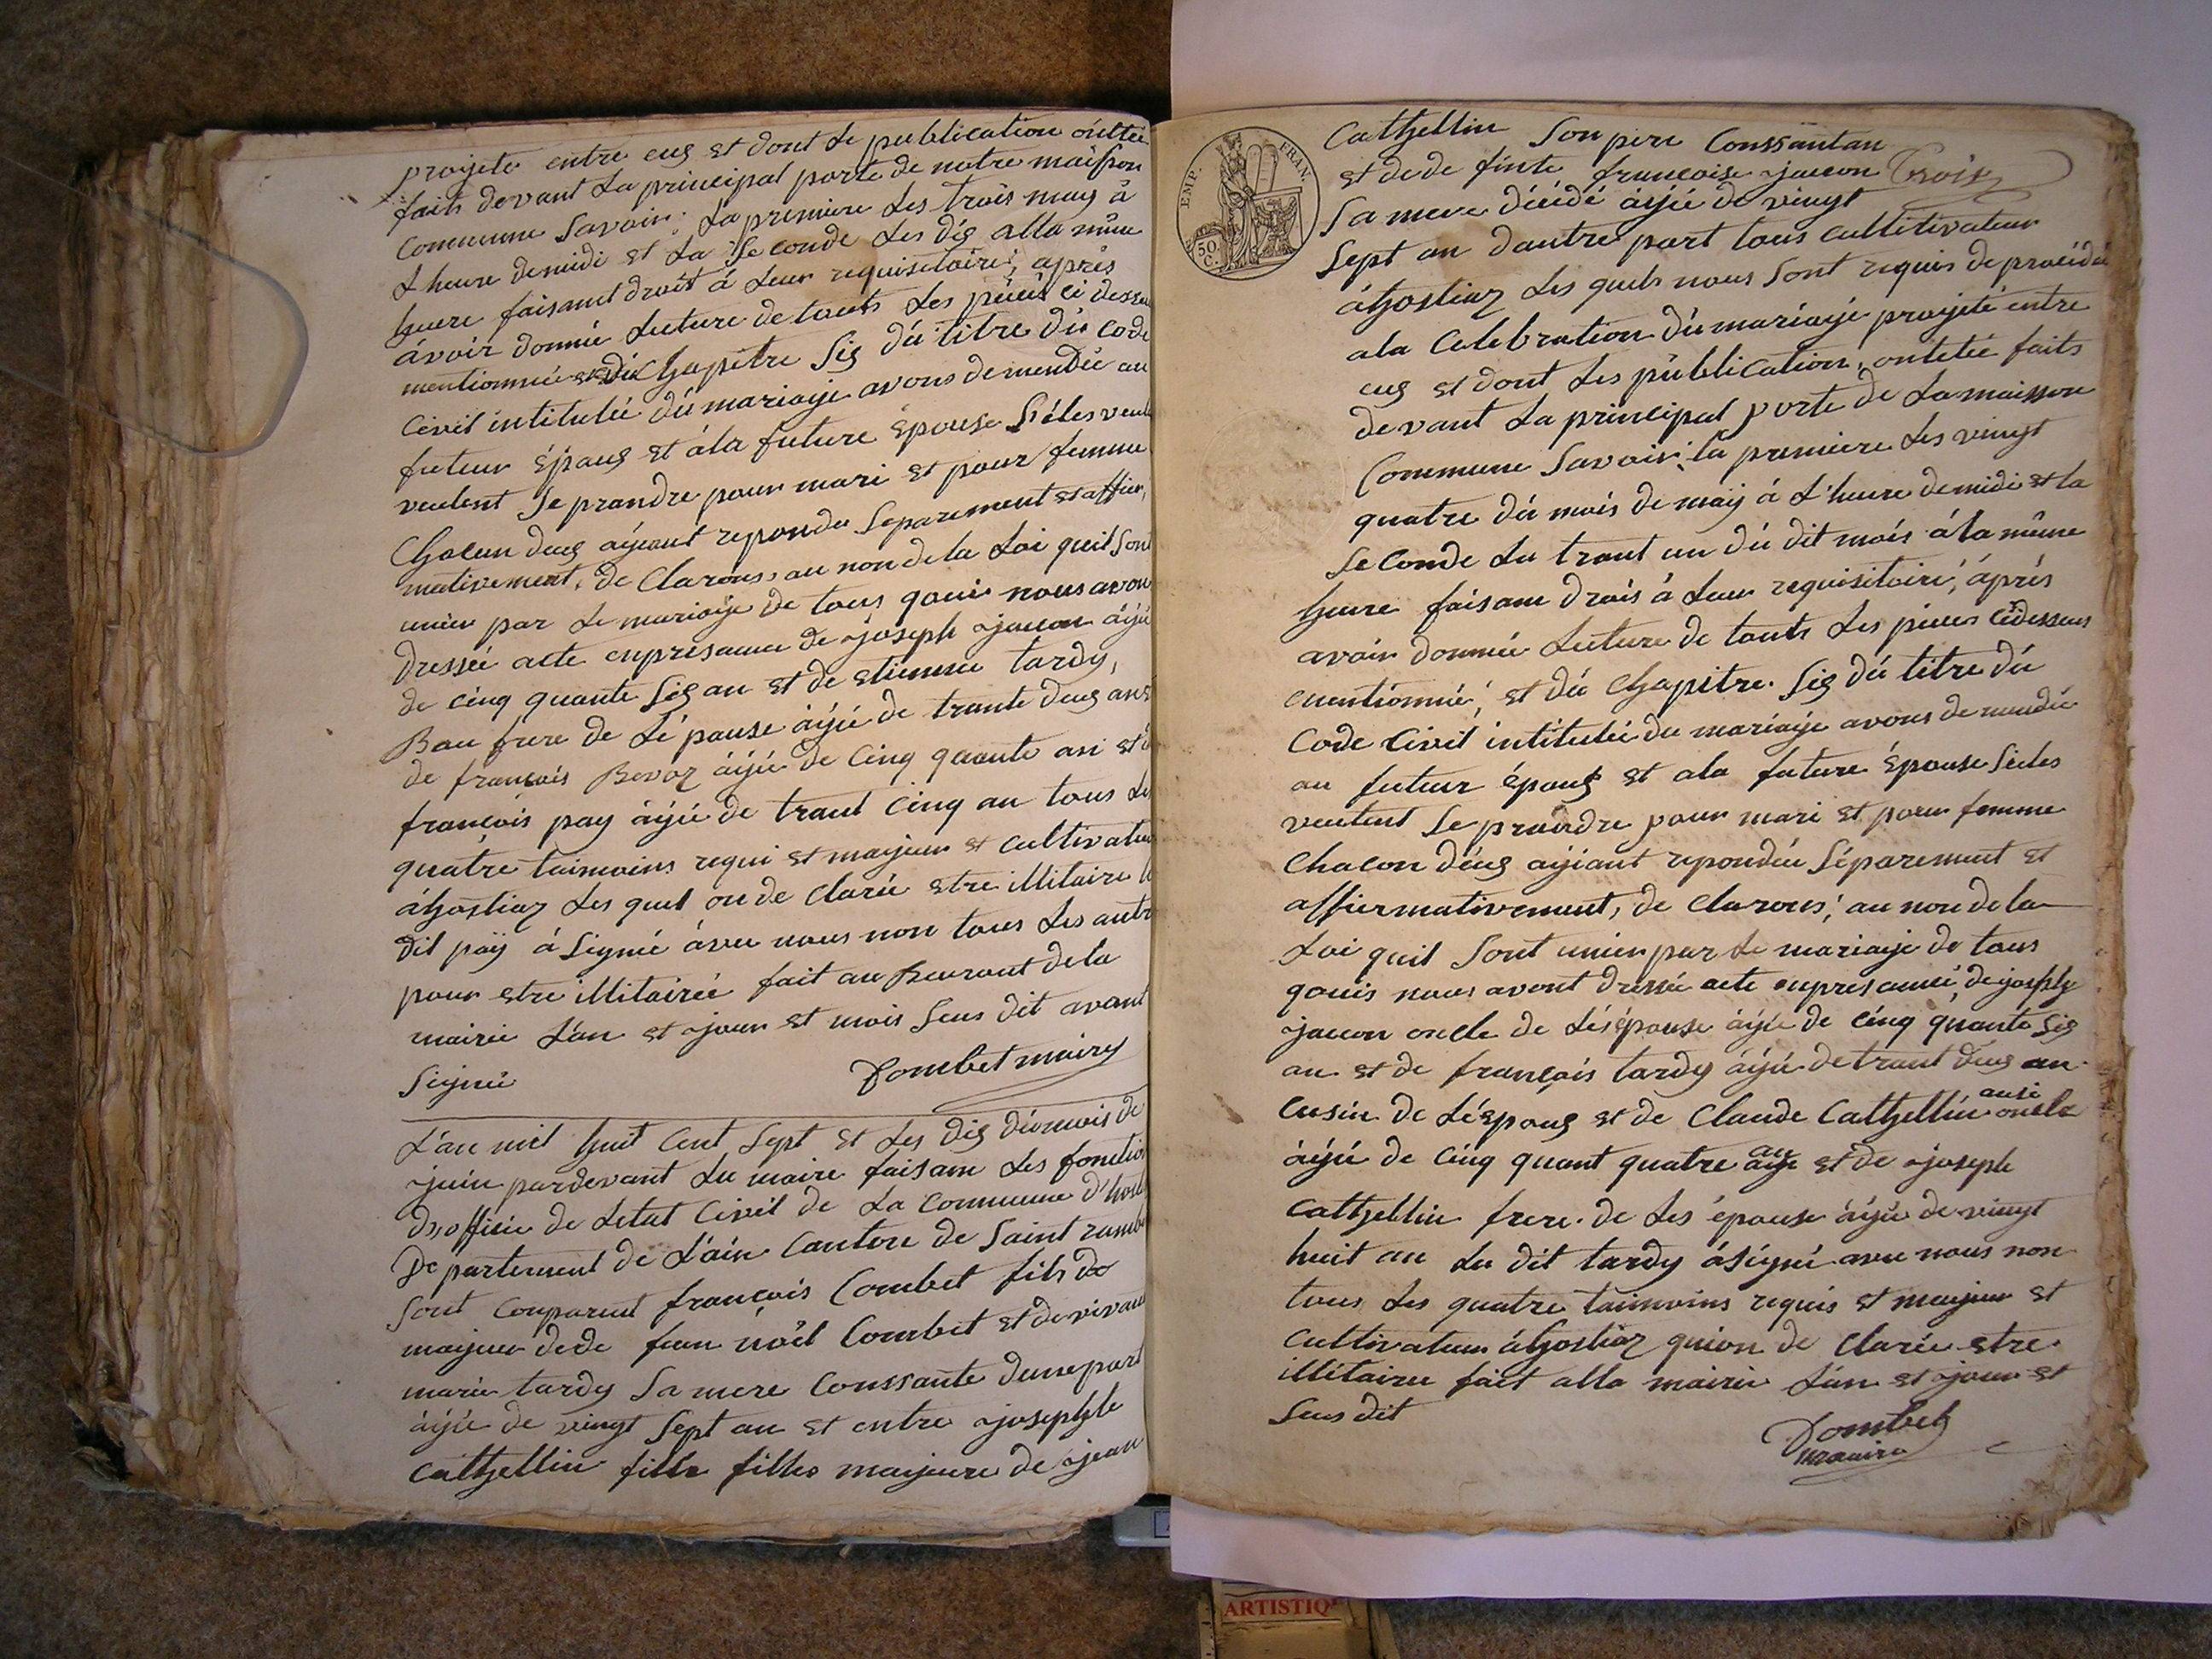 projete entre eus et dont le publication ontté
faits devant la principal porte de notre maison
commune savoir; la premiere les trois may à
l heure de midi et la seconde les dis alla même
heure faisant droit à leur requisitoire; après
avoir donnée lecture de touts les pièces ci dessu
mentionnée et dù chapitre sis dù titre dù code
civil intitulée dù mariage avons demendée au
futeur épous et àla future épouse siles veul
veulent se prandre pour mari et pour femme
chacun deus àyeant repondu separement et affir,
mativement, de clarons, au non de la loi quil sont
unier par le mariage de tous quoi nous avon
dressée acte enpresance de joseph jacon àjé
de cinq quante sis an et de etienne tardy,
Bau frere de lé pouse àjé de trante deus ans
de francois Bevoz àjé de cinq quante an et d
francois pay àjé de trant cinq an tous les
quatre taimoins requi et majeur et cultivateur
àhostiaz les quel on de clarée etre illitaire le
dit paÿ à signé àvec nous non tous les autre
pour etre illitairée fait au Beuraut de la
mairie l'an et jour et mois sus dit avant
signé Dombet mairy
L'an mil huit cent sept et les dis dù mois de
juin pardevant lu maire faisam les fonction
d'officie de letat civil de la commune d'host
Departement de l'ain canton de saint rambe
sont compareut francois Combet fils de
majeur de de feun noël Combet et de vivan
marie tardy sa mere conssante dune part
àjée de vingt sept an et entre josephle
cathellin fille filles majeure de jean
EMP. FRAN.
50 C.
Cathellin son pere conssantan
et de de finte francoise jacon Trois
sa mere décédé àjée de vingt
sept an dautre part tous cultitivateur
àhostiaz les quels nous sont requis de procédé
ala celebration dù mariage projeté entre
eus et dont les publication, ontetée faits
devant la principal porte de la maisson
commune savoir; la premiere les vingt
quatre dù mois de maÿ à l'heure de midi et la
seconde lu trant un dù dit mois àla même
heure faisam drois à leur requisitoire; après
avoir donnée lecture de touts les pieces cidessus
mentionnée; et dù chapitre sis dù titre dù
code civil intitulée du mariaje avons demendée
au futeur épous et ala future épouse siles
veulent se prandre pour mari et pour femme
chacon d'eus ajiant repondeu séparement et
affiermativement, de clarons; au non de la
loi quil sont unier par le mariaje de tous
quois nous avont dressée acte enpresance, de joseph
jacon oncle de lésépouse àjé de cinq quante sis
an et de francois tardy àjé de trant deus an
cusin de lé'spous et de claude cathellin ausi oncle
àjé de cinq quant quatre an et de joseph
cathellin frere de les épouse àjé de vingt
huit an lu dit tardy àsigné avec nous non
tous les quatre taimoins requis et majeur et
cultivateur àhostiaz quion de clarée etre
illétairee fait alla mairie l'an et jour et
sus dit
Dombet
maire
ARTISTIQ